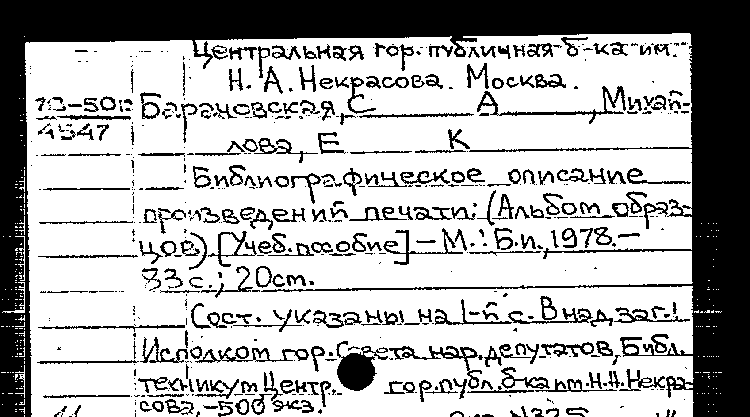 Центральная гор. публичная б-ка им.
Н. А. Некрасова. Москва.
Барановская, С А , Михай-
4547
лова, Е К
Библиографическое описание
произведений печати: (Альбом образ-
цов). [Учеб. пособие] — М.: Б.и., 1978. —
83 с.; 20 ст.
Сост. указаны на 1-й с. В над. заг.:
Исполком гор. Совета нар. депутатов, Библ.
техникум, Центр. гор. публ. б-ка им. Н.А. Некра-
сова. — 500 экз.